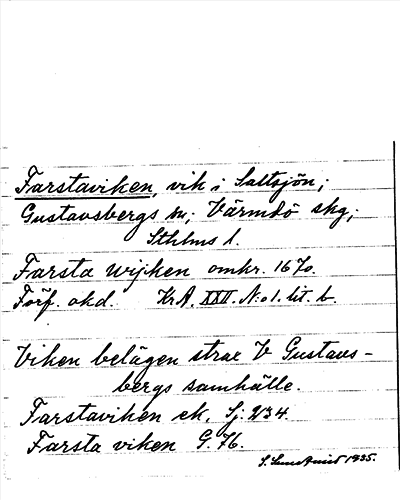 Farstaviken, vik i Saltsjön;
Gustavsbergs sn; Värmdö skg;
Sthlms l.
Farsta wijken omkr. 1670.
Förf. okd. KrA. XXII. N:o 1. lit. b.
Viken belägen strax V Gustavs-
bergs samhälle.
Farstaviken ek. Sj. 234.
Farsta viken G. 76.
1935.